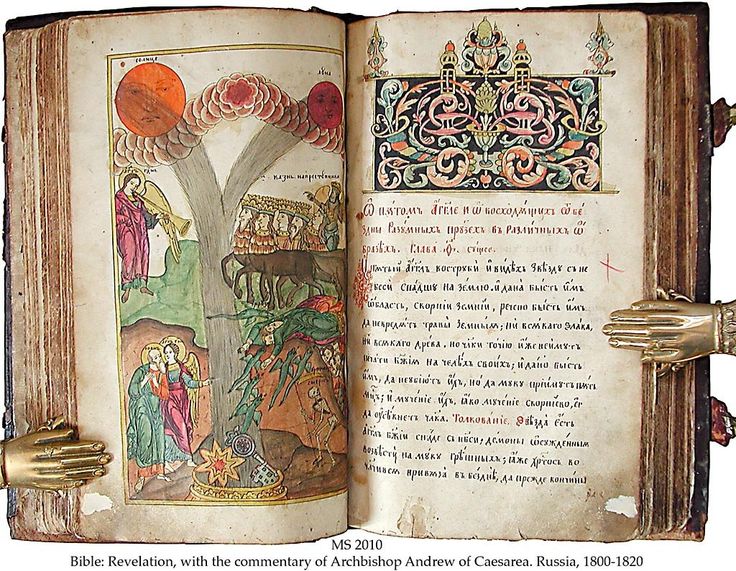 солнце
луна
Ѿ пѧтомъ аг҃гле и ѿ восходѧщихъ ѿ бе
здны разумныхъ прузехъ въ различныхъ ѿ
бразѣхъ. Глава Ѳ҃.
Пѧтый аг҃глъ воструби и видѣхъ звѣзду съ не
бесй спадшу на землю. и дана бысть имъ
ѡбласть, скорпїи земнїи, речено бысть имъ
да невредѧтъ травы земныѧ; ни всѧкаго злака,
ни всѧкаго древа, но чл҃ки точїю иже неимутъ
печати бж҃їѧ на челѣхъ своихъ; и дано бысть
имъ, да неубїютъ ихъ, но да муку прїимутъ
мц҃ъ; и мученїе ихъ, ꙗко мученїе скорпїево, ег
да оусѣкнетъ чл҃ка. Толкованїе. Ѕвѣзда есть
аг҃глъ бж҃їи сниде съ нб҃си; демоны ѡсужденным
возвести на муку грѣшныхъ; ꙗже хр҃тосъ во
чл҃чивсѧ привѧза въ безднѣ, да прежде кончины
MS 2010
Bible: Revelation, with the commentary of Archbishop Andrew of Caesarea. Russia, 1800-1820